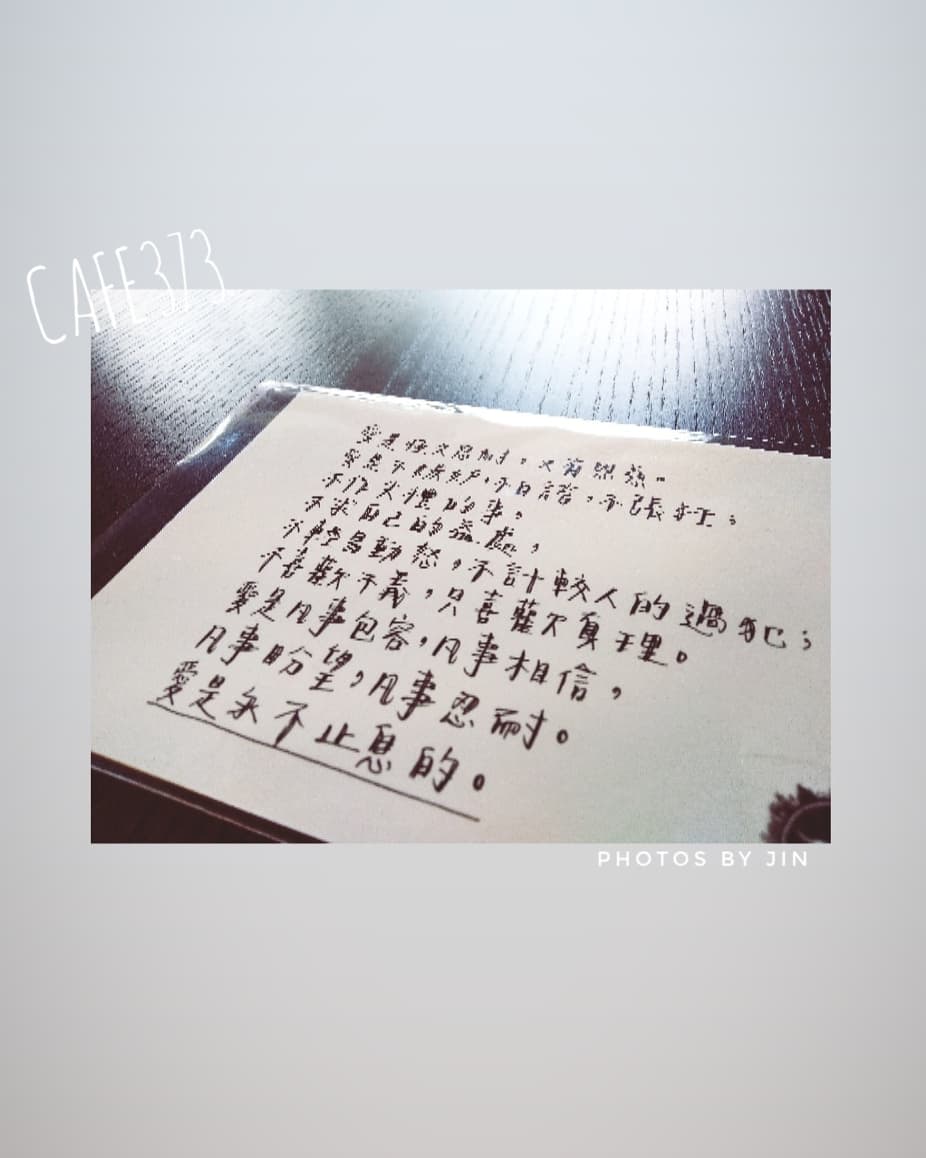 CAFE373
愛是恆久忍耐，又有恩慈。
愛是不嫉妒，不自誇，不張狂；
不作失禮的事，
不求自己的益處，
不輕易動怒，不計較人的過犯；
不喜歡不義，只喜歡真理。
愛是凡事包容，凡事相信，
凡事盼望，凡事忍耐。
愛是永不止息的。
PHOTOS BY JIN